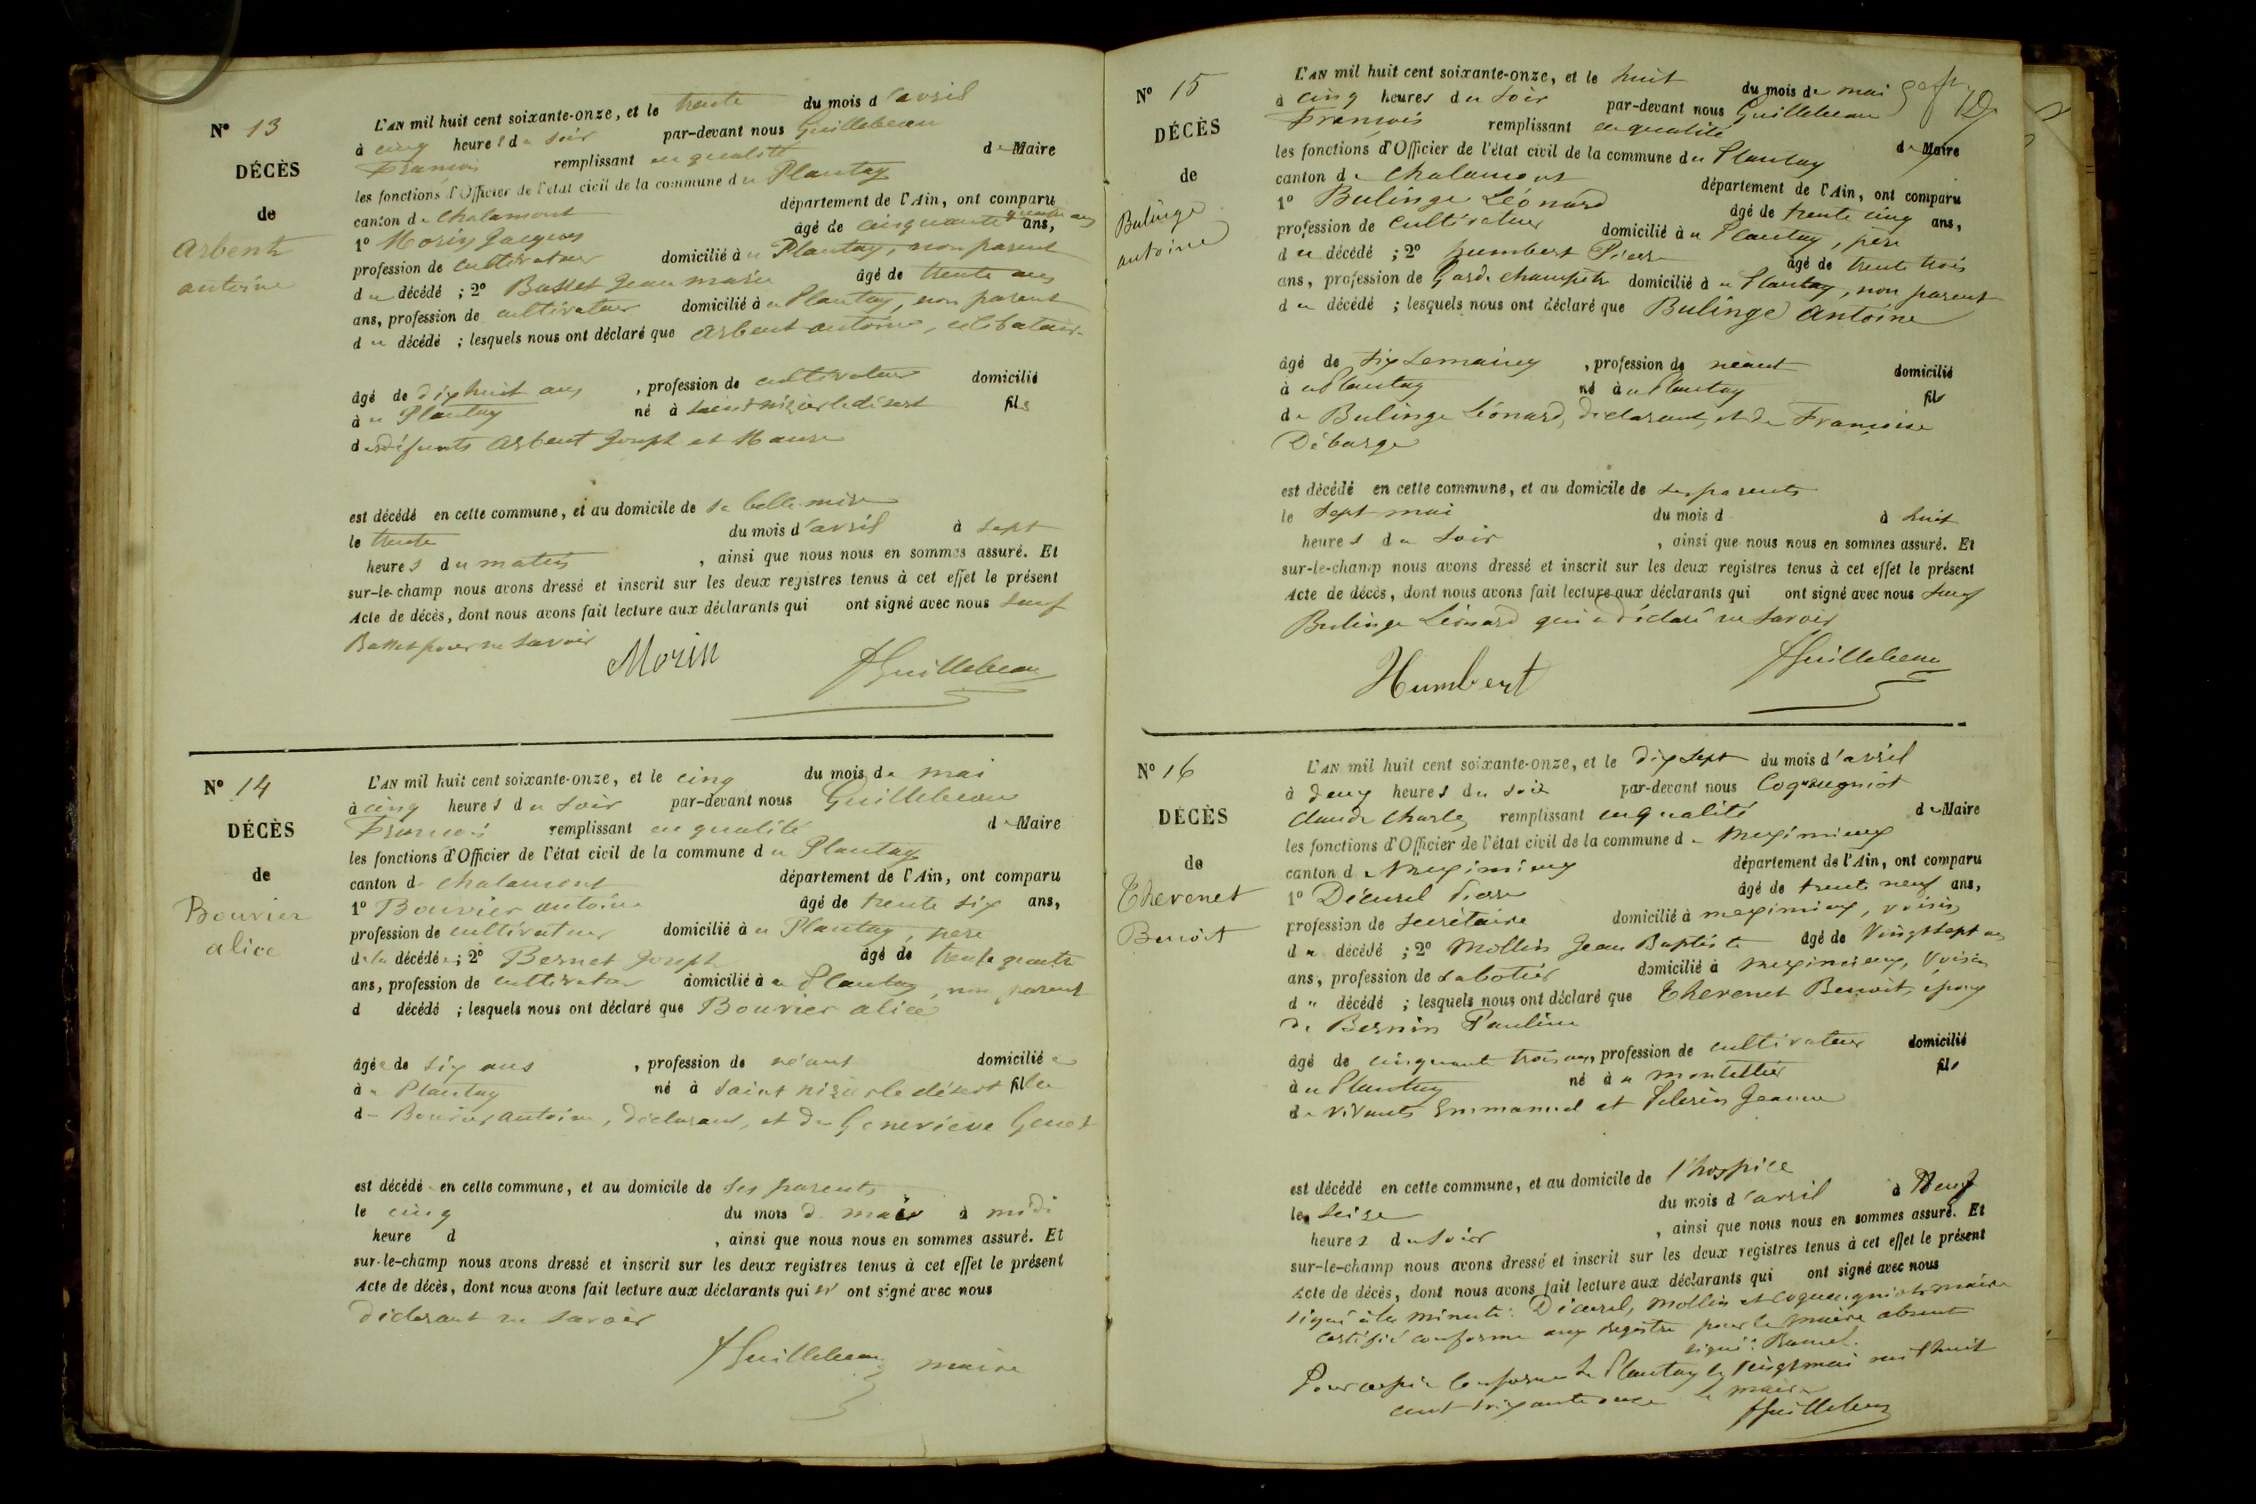 N° 13
DÉCÈS
de
Arbent
antoine
L'AN mil huit cent soixante-onze, et le trente du mois d'avril
à cinq heures du soir par-devant nous Guillebeau
François remplissant en qualité de Maire
les fonctions d'Officier de l'état civil de la commune du Plantay
canton de Chalamont département de l'Ain, ont comparu
1° Morin Jacques âgé de cinquante quatre ans ans,
profession de cultivateur domicilié à u Plantay, non parent
du décédé ; 2° Basset Jean marie âgé de trente ans
ans, profession de cultivateur domicilié à u Plantay, non parent
du décédé ; lesquels nous ont déclaré que Arbent antoine, célibataire
âgé de dix huit ans , profession de cultivateur domicilié
à u Plantay né à Saint nizier le désert fils
des défunts Arbent Joseph et
est décédé en cette commune, et au domicile de sa belle mère
le trente du mois d'avril à sept
heures du matin , ainsi que nous nous en sommes assuré. Et
sur-le-champ nous avons dressé et inscrit sur les deux registres tenus à cet effet le présent
Acte de décès, dont nous avons fait lecture aux déclarants qui ont signé avec nous sauf
Basset pour ne savoir
Morin
FGuillebeau
N° 14
DÉCÈS
de
Bouvier
alice
L'AN mil huit cent soixante-onze, et le cinq du mois de mai
à cinq heures du soir par-devant nous Guillebeau
François remplissant en qualité de Maire
les fonctions d'Officier de l'état civil de la commune du Plantay
canton de Chalamont département de l'Ain, ont comparu
1° Bouvier antoine âgé de trente six ans,
profession de cultivateur domicilié à u Plantay, père
de la décédée ; 2° Bernet Joseph âgé de trente quatre
ans, profession de cultivateur domicilié à u Plantay, non parent
d décédé ; lesquels nous ont déclaré que Bouvier alice
âgée de six ans , profession de néant domiciliée
à u Plantay né à Saint nizier le désert fille
de Bouvier antoine, déclarant, et de Geneviève
est décédé en cette commune, et au domicile de ses parents
le cinq du mois de mai à midi
heure d , ainsi que nous nous en sommes assuré. Et
sur-le-champ nous avons dressé et inscrit sur les deux registres tenus à cet effet le présent
Acte de décès, dont nous avons fait lecture aux déclarants qui n' ont signé avec nous
déclarant ne savoir
FGuillebeau maire
N° 15
DÉCÈS
de
Bulinge
antoine
L'AN mil huit cent soixante-onze, et le huit du mois de mai
à cinq heures du soir par-devant nous Guillebeau
François remplissant en qualité de Maire
les fonctions d'Officier de l'état civil de la commune du Plantay
canton de Chalamont département de l'Ain, ont comparu
1° Bulinge Léonard âgé de trente cinq ans,
profession de cultivateur domicilié à u Plantay, père
du décédé ; 2° humbert Pierre âgé de trente trois
ans, profession de Garde champêtre domicilié à u Plantay, non parent
du décédé ; lesquels nous ont déclaré que Bulinge Antoine
âgé de six semaines , profession de néant domicilié
à u Plantay né à u Plantay fils
de Bulinge Léonard, déclarant, et de Françoise
Débarge
est décédé en cette commune, et au domicile de ses parents
le sept mai du mois d à huit
heures du soir , ainsi que nous nous en sommes assuré. Et
sur-le-champ nous avons dressé et inscrit sur les deux registres tenus à cet effet le présent
Acte de décès, dont nous avons fait lecture aux déclarants qui ont signé avec nous sauf
Bulinge Léonard qui a déclaré ne savoir
Humbert
FGuillebeau
N° 16
DÉCÈS
de
Thevenet
Benoit
L'AN mil huit cent soixante-onze, et le dix sept du mois d'avril
à deux heures du soir par-devant nous Coqueugniot
Claude Charles remplissant en qualité de Maire
les fonctions d'Officier de l'état civil de la commune de Meximieux
canton de Meximieux département de l'Ain, ont comparu
1° Décurel Pierre âgé de trente neuf ans,
profession de secrétaire domicilié à meximieux, voisin
du décédé ; 2° Mollin Jean Baptiste âgé de vingt sept ans
ans, profession de sabotier domicilié à meximieux, voisin
du décédé ; lesquels nous ont déclaré que Thevenet Benoit, époux
de Bernin Pauline
âgé de cinquante trois ans, profession de cultivateur domicilié
à u Plantay né à u montellier fils
de vivants Emmanuel et Pelerin Jeanne
est décédé en cette commune, et au domicile de l'hospice
le seize du mois d'avril à neuf
heures du soir , ainsi que nous nous en sommes assuré. Et
sur-le-champ nous avons dressé et inscrit sur les deux registres tenus à cet effet le présent
Acte de décès, dont nous avons fait lecture aux déclarants qui ont signé avec nous
signé à la minute: Décurel, Mollin et Coqueugniot maire
certifié conforme aux registre pour le maire absent
signé:
Pour copie conforme le Plantay le vingt mai mil huit
cent soixante onze le maire
FGuillebeau